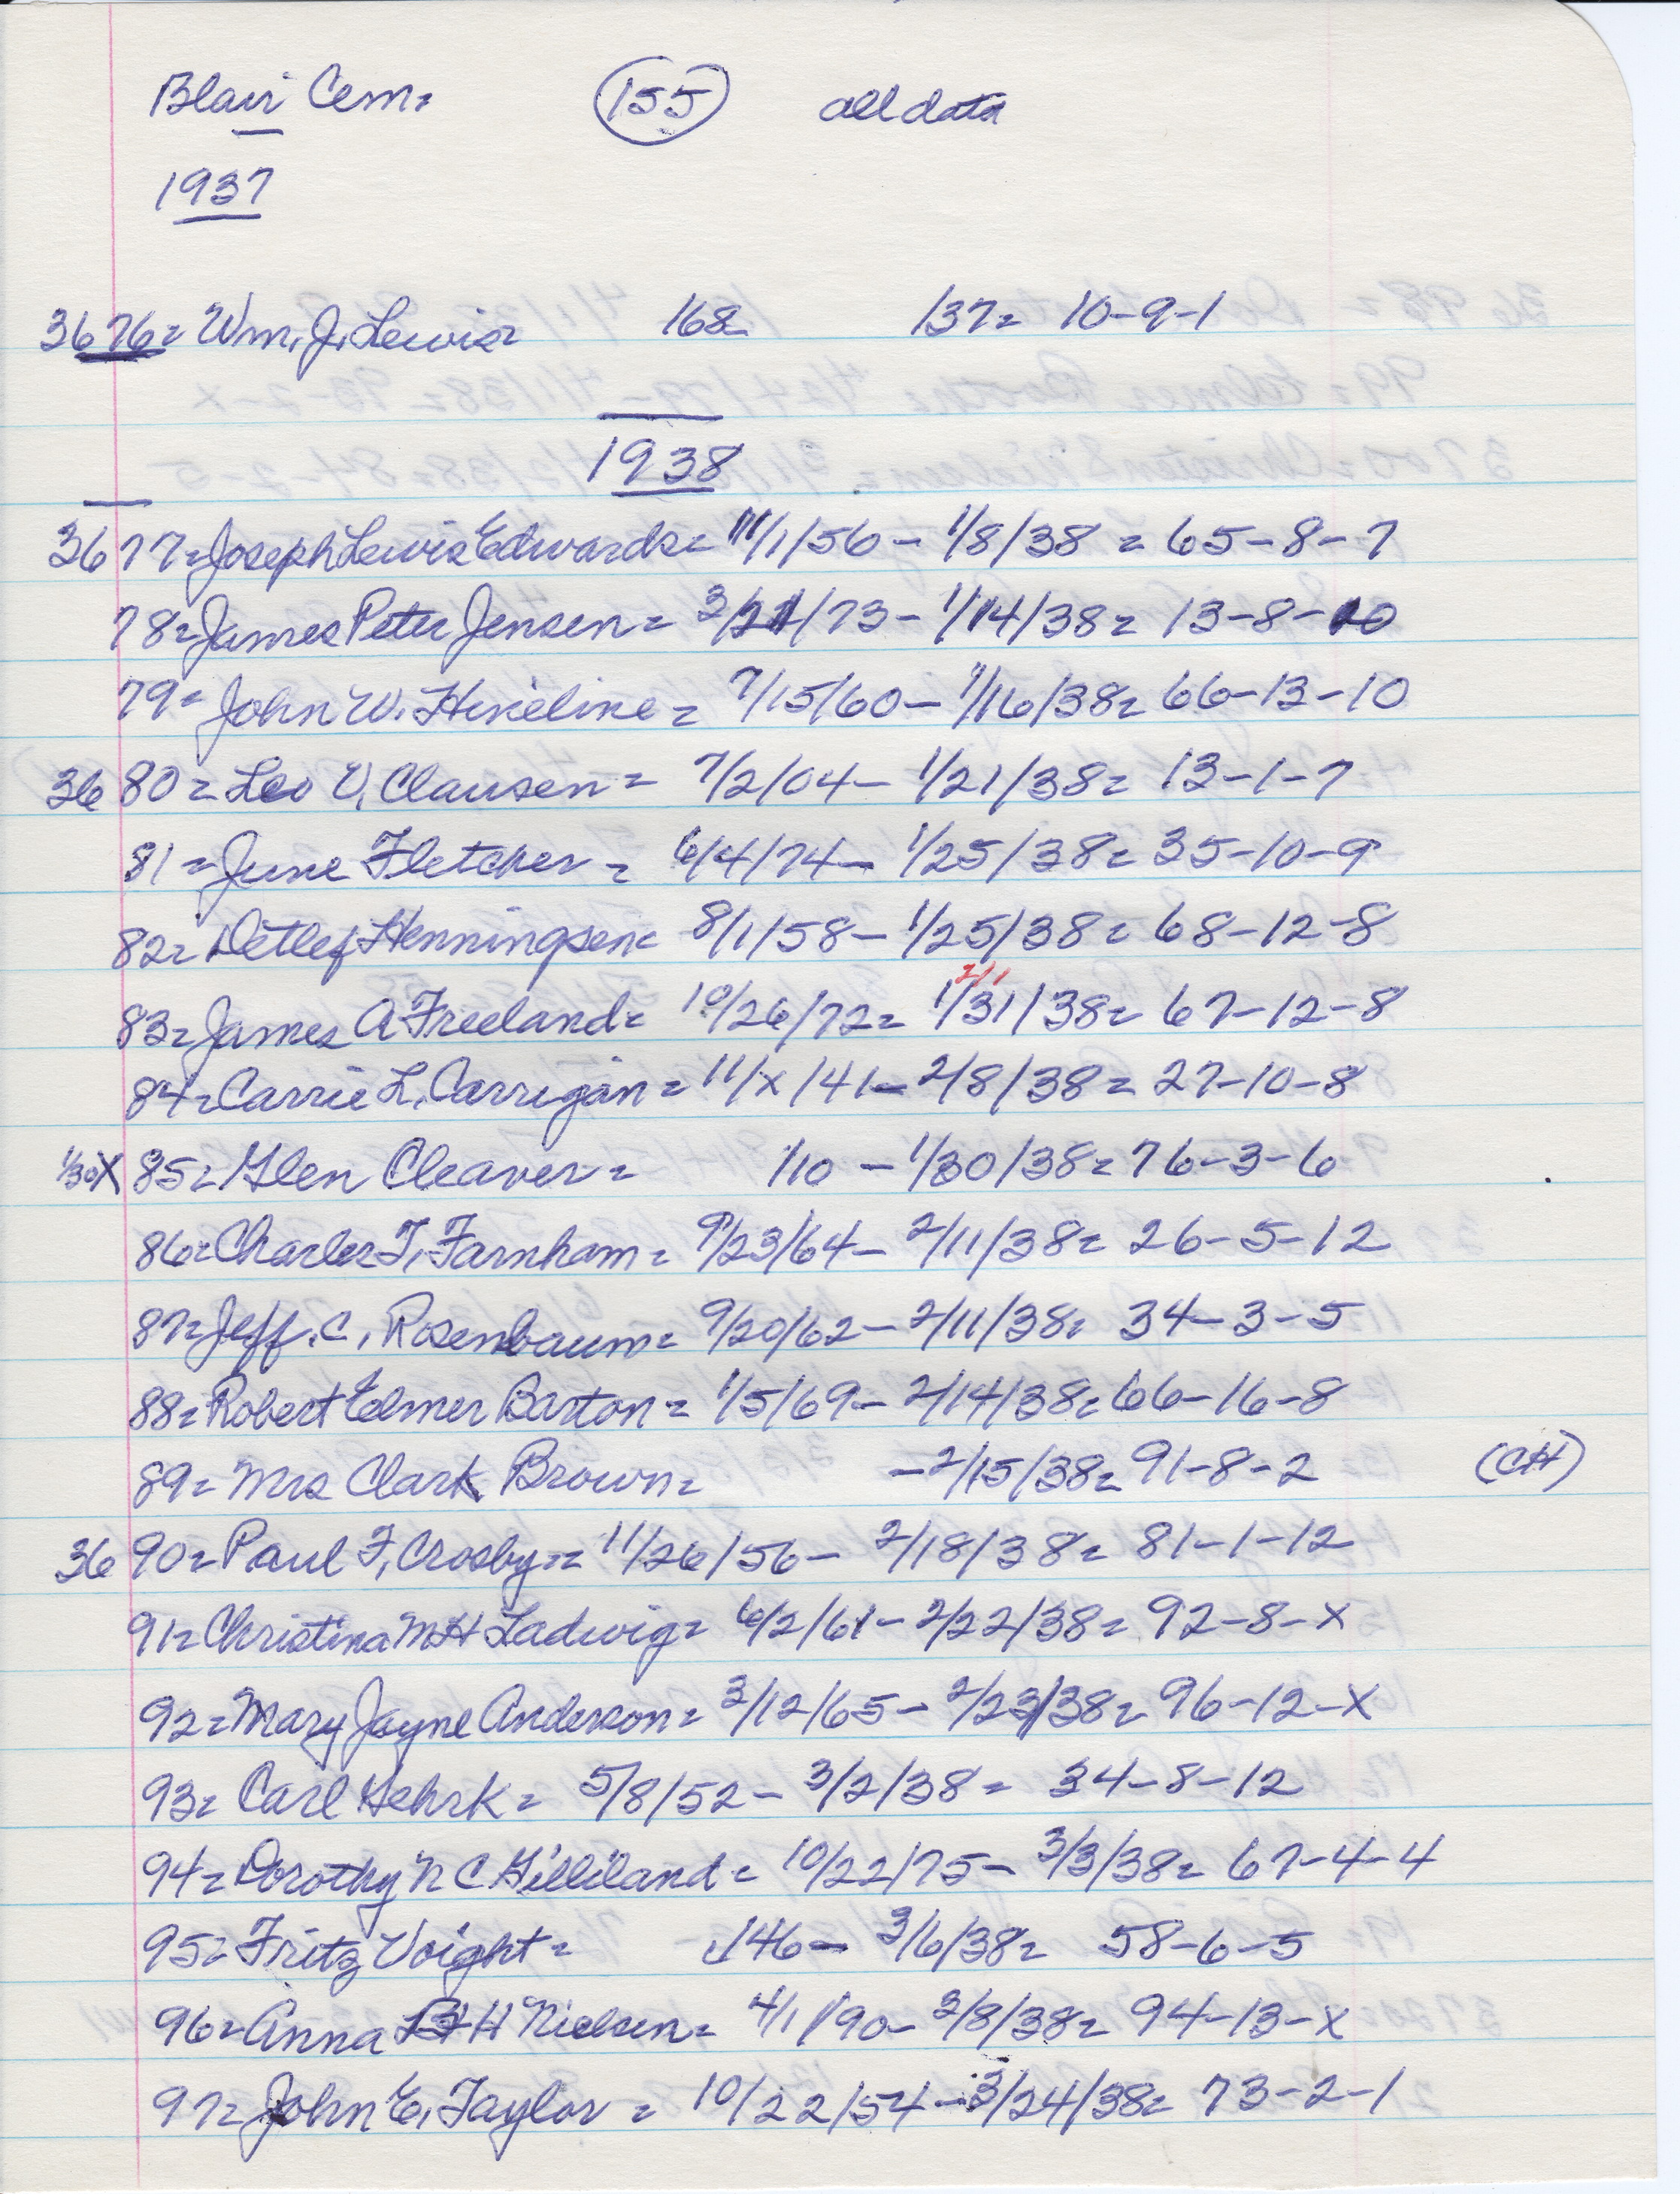 Blair Cem= 155 all data
1937
3676= Wm. J. Lewis= 168 137= 10-9-1
1938
3677=Joseph Lewis Edwards= 11/1/56- 1/8/38= 65-8-7
78=James Peter Jensen= 3/21/73- 1/14/38= 13-8-10
79= John W. Hineline= 7/15/60- 1/16/38= 66-13-10
36 80= Leo V. Clausen= 7/2/04- 1/21/38= 13-1-7
81=June Fletcher= 6/4/74- 1/25/38= 35-10-9
82= Detlef Henningsen= 8/1/58- 1/25/38= 68-12-8
2/1
83=James A Freeland= 10/26/72= 1/31/38= 67-12-8
84=Carrie L. Carrigan= 11/x/41- 2/8/38= 27-10-8
1/30X 85= Glen Cleaver= /10 - 1/30/38= 76-3-6
86=Charles T. Farnham= 9/23/64- 2/11/38= 26-5-12
87=Jeff. C. Rosenbaum= 9/20/62- 2/11/38= 34-3-5
88=Robert Elmer Barton= 1/5/69- 2/14/38= 66-16-8
89= Mrs Clark Brown= -2/15/38= 91-8-2 (CH)
36 90=Paul F. Crosby= 11/26/56- 2/18/38= 81-1-12
91=Christina MH Ladwig= 6/2/61- 2/22/38= 92-8-x
92=Mary Jayne Anderson= 3/12/65- 2/23/38= 96-12-x
93= Carl Gehrk= 5/8/52- 3/2/38= 34-8-12
94=Dorothy N C Gilliland= 10/22/75- 3/3/38= 67-4-4
95=Fritz Voight= /46- 3/6/38= 58-6-5
96=Anna H Nielsen= 4/1/90- 3/8/38= 94-13-x
97=John E. Taylor= 10/22/54- 3/24/38= 73-2-1